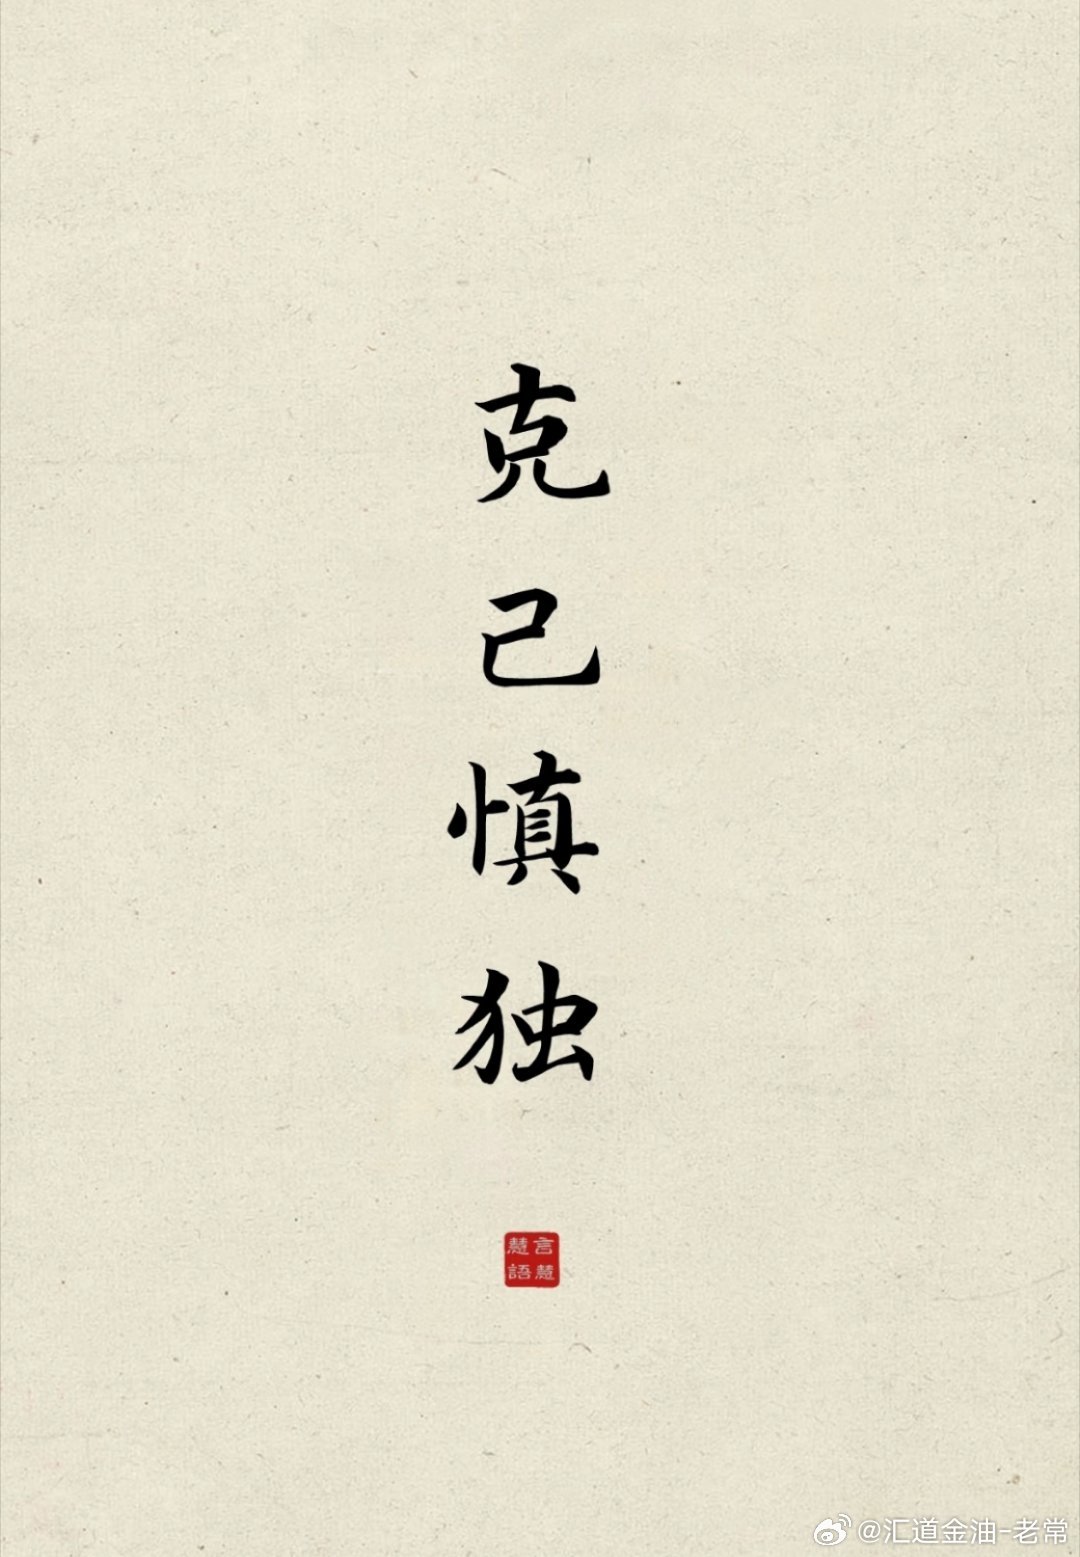 克己慎独
言慧
慧語
@汇道金油-老常